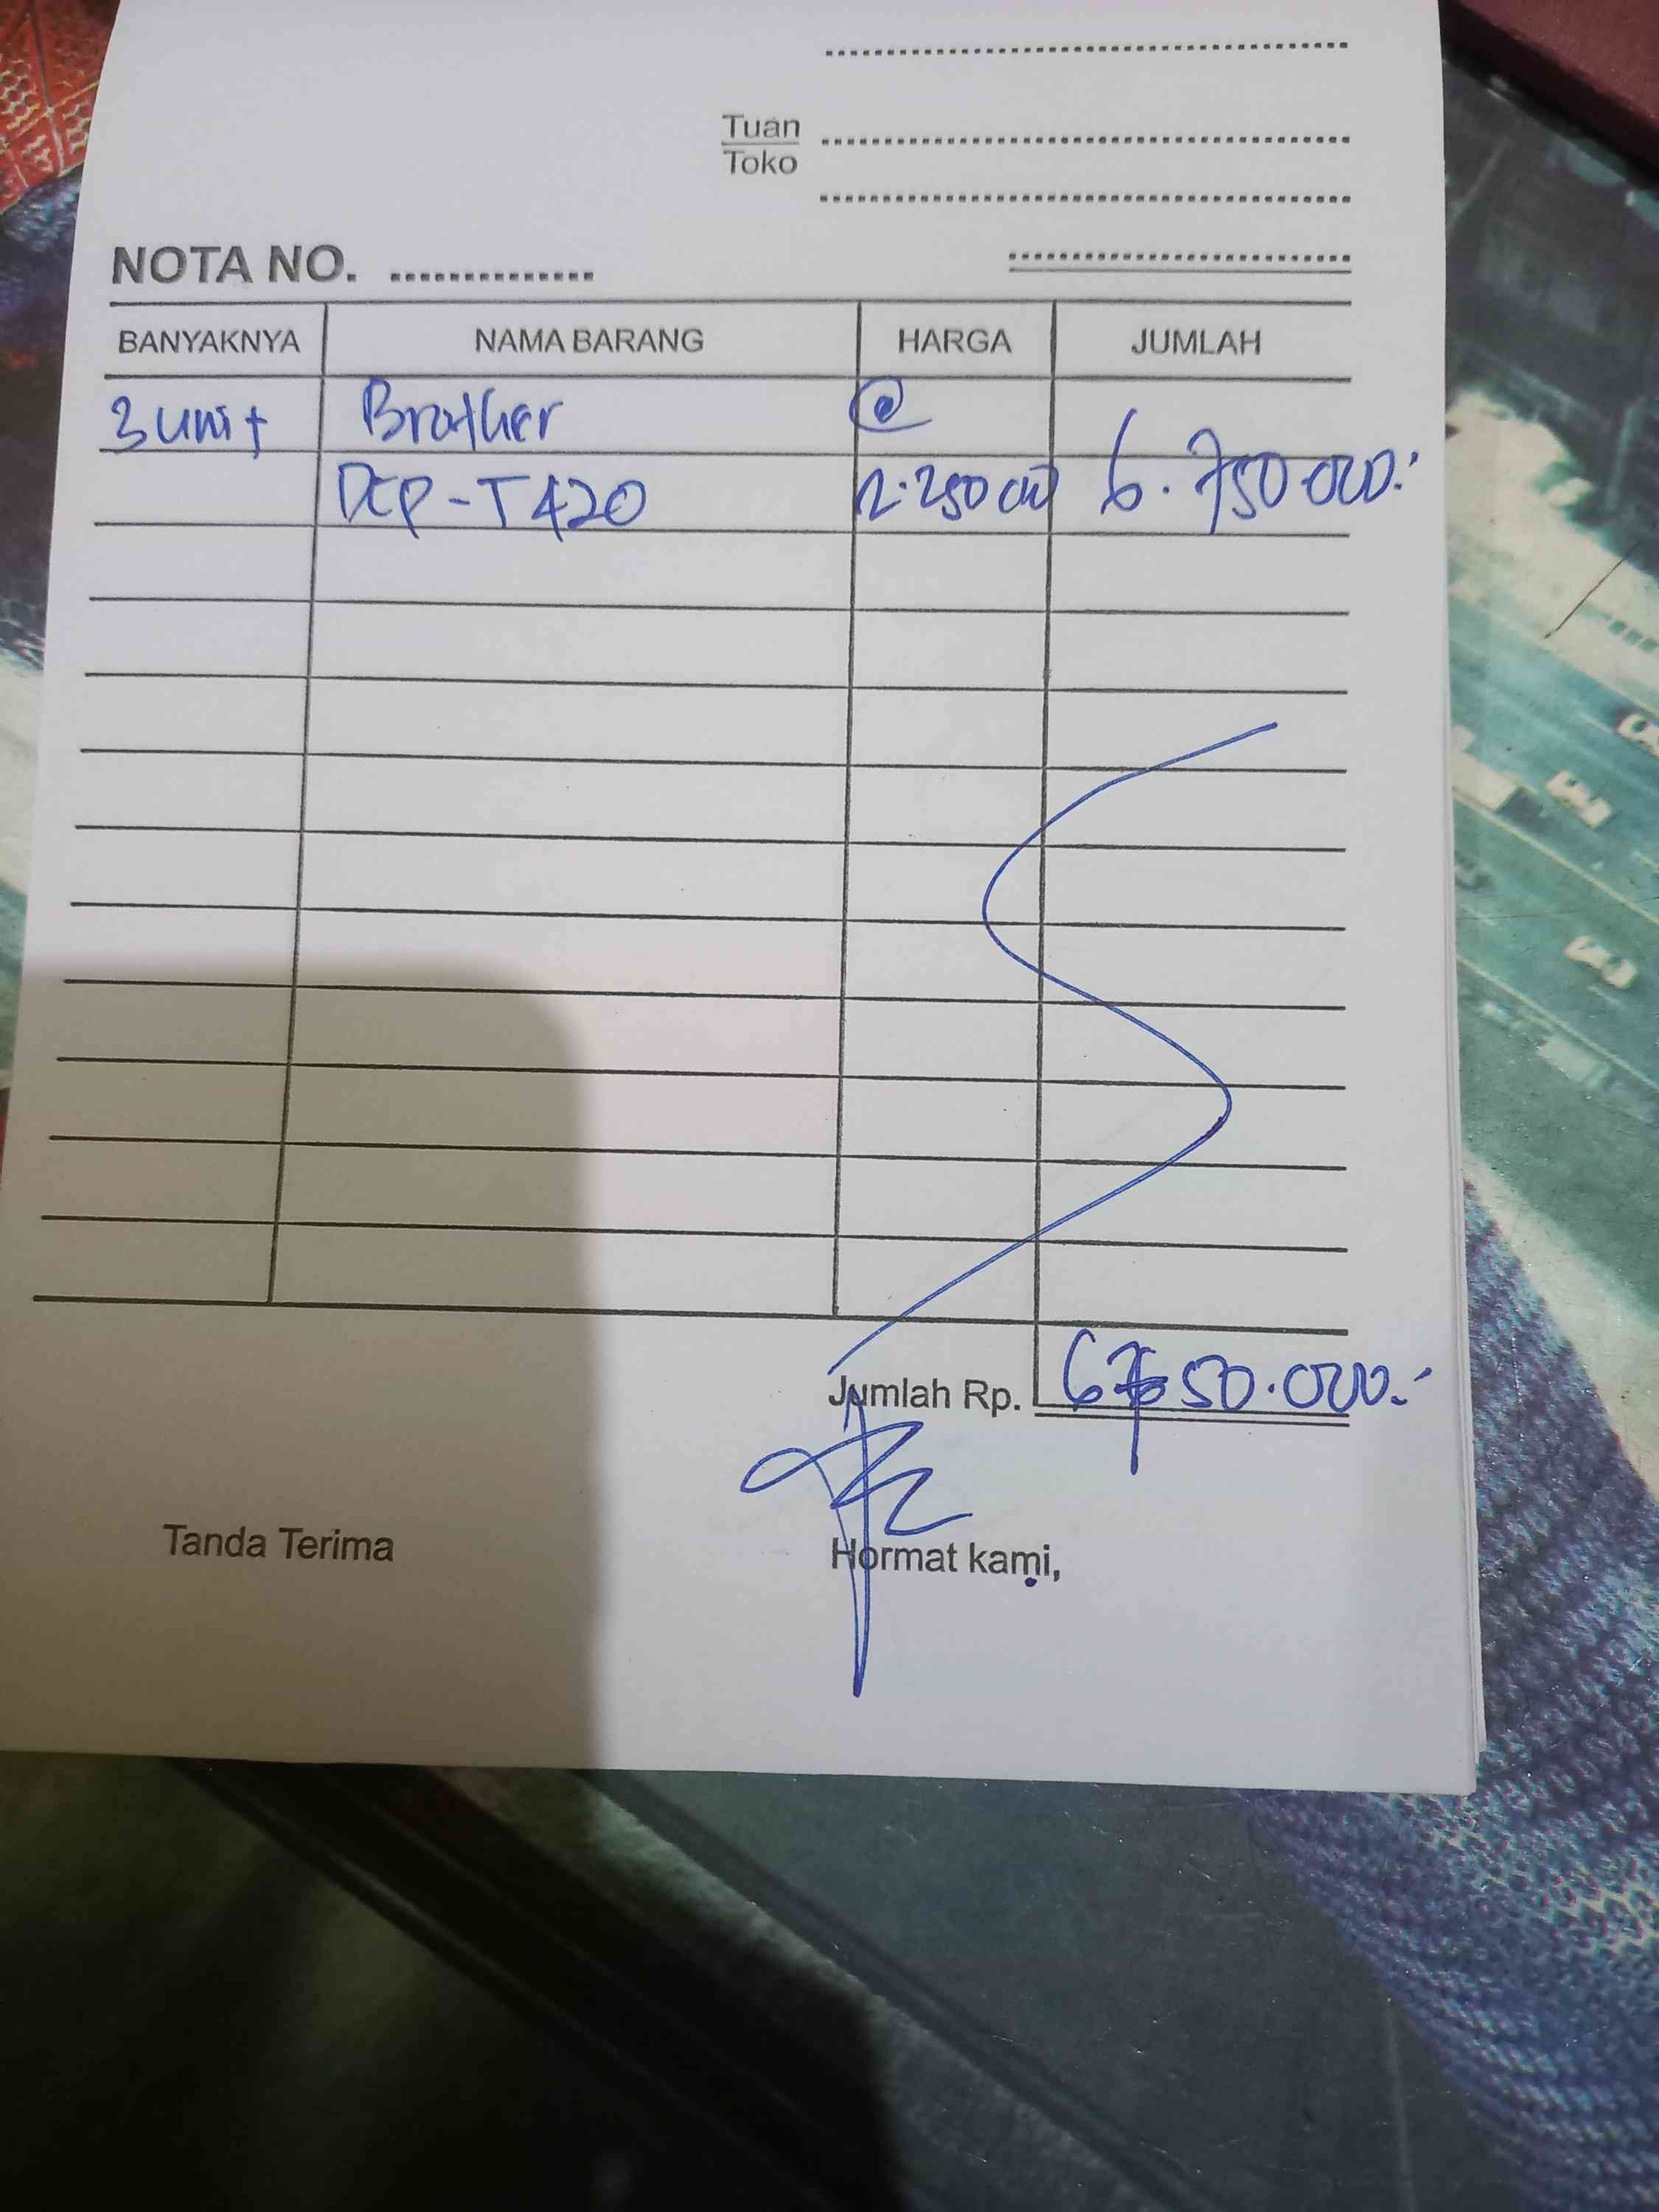 Tuan
Toko
NOTA NO. ..............
BANYAKNYA NAMA BARANG HARGA JUMLAH
3 unit Brother @
DCP-T420 2.250 000 6.750.000.-
Jumlah Rp. 6750.000.-
Tanda Terima Hormat kami,